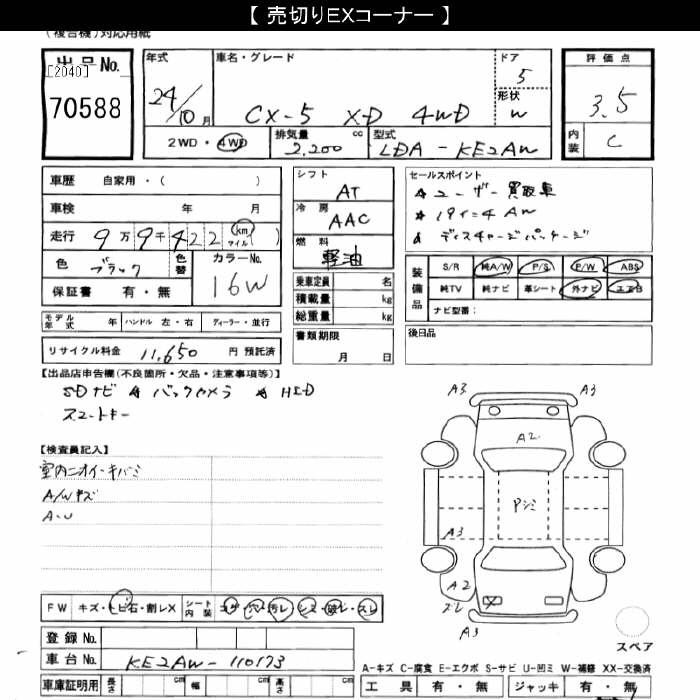 【 売切りEXコーナー 】
(複合機)対応用紙
出品No.
[2040]
70588
年式
24/10月
車名・グレード
CX-5 XD 4WD
ドア
5
形状
W
評価点
3.5
内装
C
2WD・4WD
排気量 cc
2,200
型式
LDA-KE2AW
車歴 自家用・( )
車検 年 月
走行 9万9千422 (km マイル)( )
色 ブラック
色替
カラーNo.
16W
保証書 有・無
シフト
AT
冷房
AAC
燃料
軽油
乗車定員 名
積載量 kg
総重量 kg
書類期限
月 日
セールスポイント
ユーザー買取車
19インチAW
ディスチャージパッケージ
装備品
S/R 純A/W P/S P/W ABS
純TV 純ナビ 革シート 外ナビ エアB
ナビ型番:
後日品
モデル年式 年 ハンドル 左・右 ディーラー・並行
リサイクル料金 11,650 円 預託済
【出品店申告欄(不良箇所・欠品・注意事項等)】
SDナビ バックカメラ HID
スマートキー
【検査員記入】
室内ニオイ・キバミ
A/Wキズ
A・U
A3 A3
A2
Pシミ
A3
A2
スレ
A3
X
FW キズ・トビ石・割レX シート内装 コゲ・穴・汚レ・シミ・破レ・スレ
登録No.
車台No. KE2AW-110173
車庫証明用 長さ cm 幅 cm 高さ cm
スペア
A-キズ C-腐食 E-エクボ S-サビ U-凹ミ W-補修 XX-交換済
工具 有・無 ジャッキ 有・無